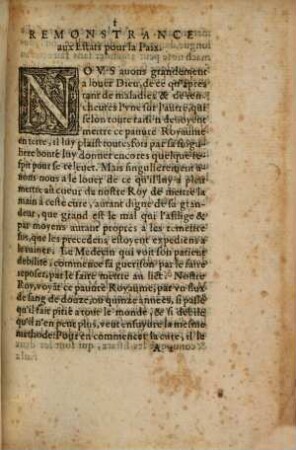 1
REMONSTRANCE
aux Estats pour la Paix.
NOVS auons grandement
a louer Dieu, de ce qu'apres
tant de maladies & de ren-
cheutes l'vne sur l'autre, qui
selon toute raison deuoyent
mettre ce pauure Royaume
en terre, il luy plaist toutesfois par sa
bonté luy donner encores quelque
pour se releuer. Mais singulierement a-
uons nous a le louer de ce qu'il luy a pleu
mettre au coeur du nostre Roy de mettre la
main à ceste cure, autant digne de sa gran-
deur, que grand est le mal qui l'afflige &
par moyens autant propres à les remettre
sus, que les precedens estoyent expediens a
le ruiner. Le Medecin qui voit son patient
debilité, commence sa guerison par le faire
reposer, par le faire mettre au lict. Nostre
Roy, voyãt ce pauure Royaume, par vn flux
de sang de douze, ou quinze années, si passé
qu'il fait pitié a tout le monde, & si debile
qu'il n'en peut plus, veut ensuyure la mesme
methode: Pour en commencer la cure, il le
A